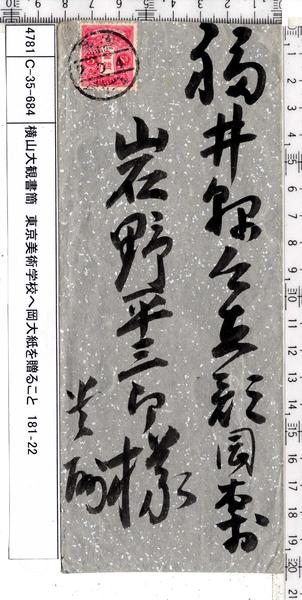 福井縣今立郡岡本村
岩野平三郎様
貴酬
4781 C-35-684 横山大観書簡 東京美術学校へ岡大紙を贈ること 181-22